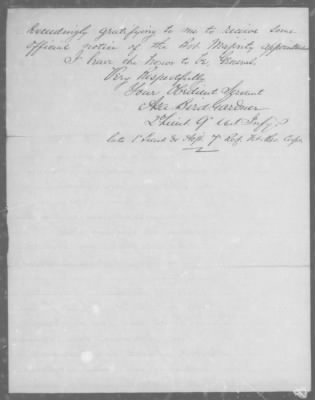 exceedingly gratifying to me to receive some
official notice of the Bvt Majority appointment
I have the honor to be, General,
Very Respectfully
Your Obedient Servant
Asa Bird Gardner
2 Lieut. 9" Inf'y.
late 1" Lieut & 7" Regt. Vet. Res. Corps